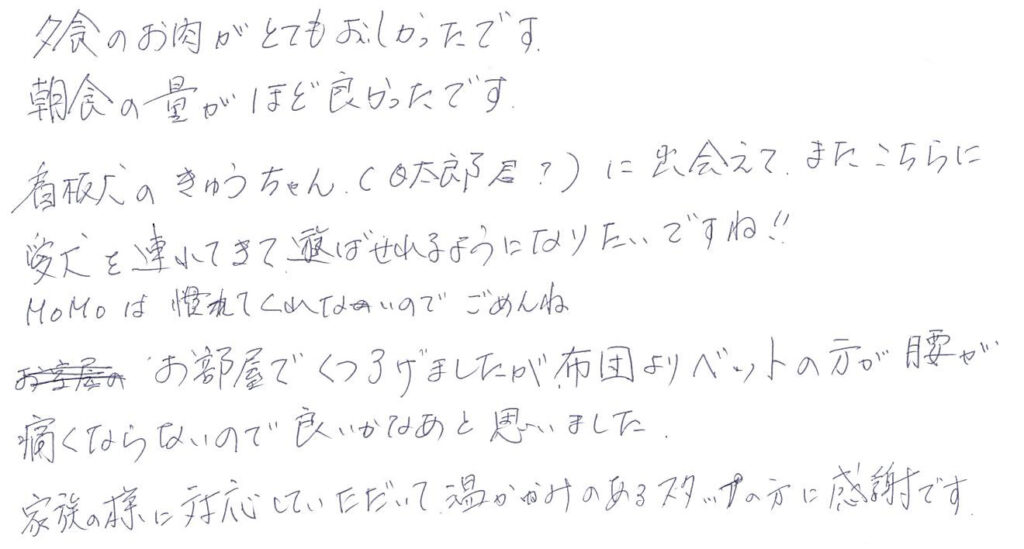 夕食のお肉がとてもおいしかったです.
朝食の量がほど良かったです.
看板犬のきゅうちゃん.(Q太郎君?)に出会えて.またこちらに
愛犬を連れてきて.遊ばせれるようになりたいですね!!
MOMOは慣れてくれないのでごめんね
お部屋でくつろげましたが.布団よりベットの方が腰が
痛くならないので良いかなあと思いました.
家族の様に対応していただいて.温かみのあるスタッフの方に感謝です.